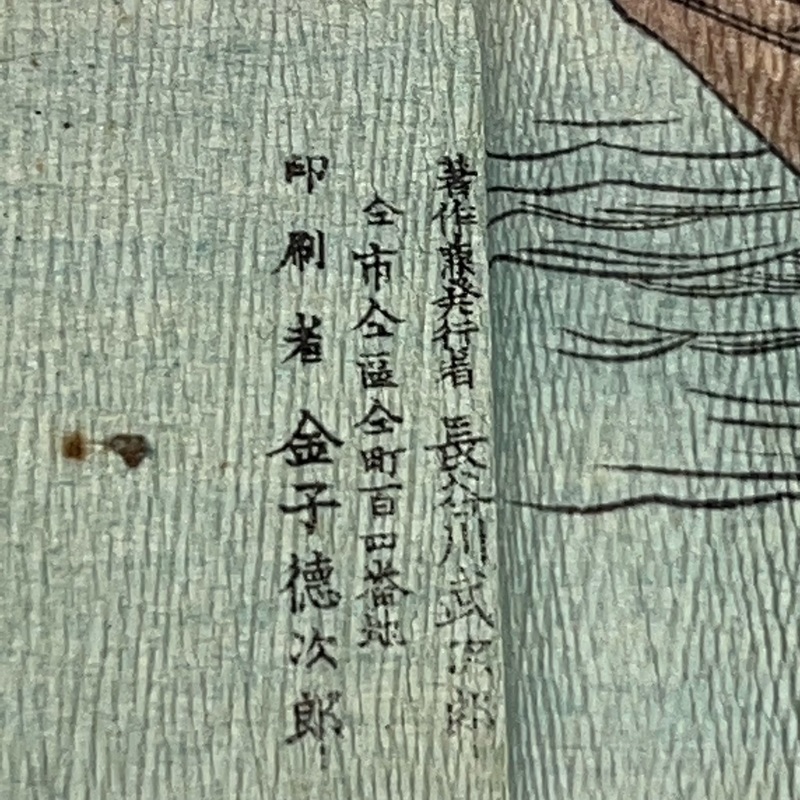 著作兼発行者 長谷川武次郎
仝市仝區仝町百四番地
印刷者 金子德次郎